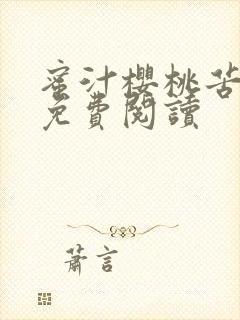 蜜汁櫻桃苦
免費閱讀
蕭言